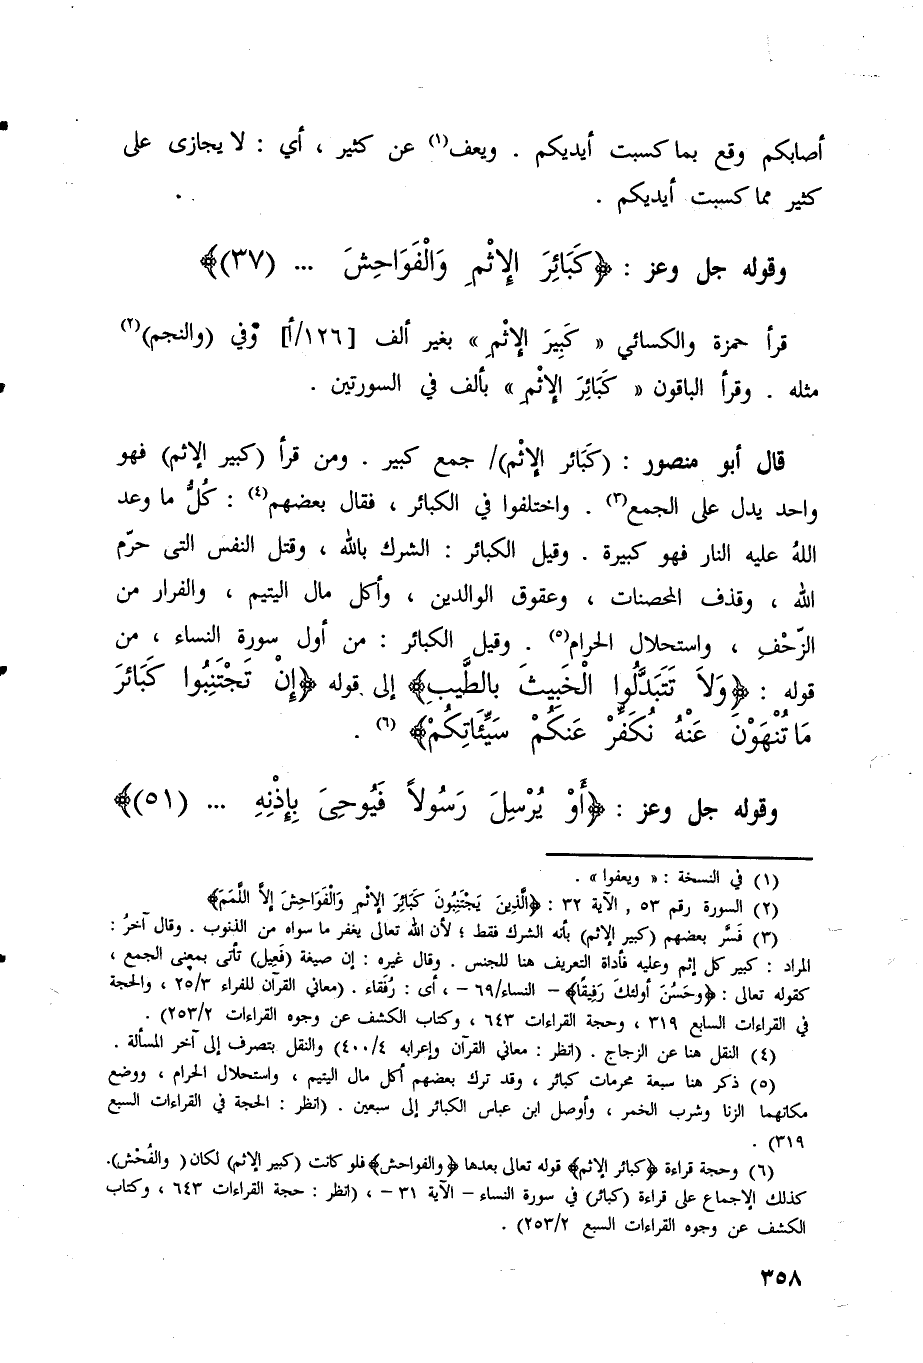 أصابكم وقع بما كسبت أيديكم . ويعف(١) عن كثير ، أي : لا يجازى على
كثير مما كسبت أيديكم .
وقوله جل وعز : ﴿كَبَائِرَ الإِثْمِ وَالْفَوَاحِشَ ... (٣٧)﴾
قرأ حمزة والكسائي « كَبِيرَ الإِثْمِ » بغير ألف [١٢٦/أ] وفي (والنجم)(٢)
مثله . وقرأ الباقون « كَبَائِرَ الإِثْمِ » بألف في السورتين .
قال أبو منصور : (كَبَائر الإثْم)/ جمع كبير . ومن قرأ (كبير الإثم) فهو
واحد يدل على الجمع(٣) . واختلفوا في الكبائر ، فقال بعضهم(٤) : كُلُّ ما وعد
اللهُ عليه النار فهو كبيرة . وقيل الكبائر : الشرك بالله ، وقتل النفس التى حرّم
الله ، وقذف المحصنات ، وعقوق الوالدين ، وأكل مال اليتيم ، والفرار من
الزّحْفِ ، واستحلال الحرام(٥) . وقيل الكبائر : من أول سورة النساء ، من
قوله : ﴿وَلاَ تَتَبَدَّلُوا الْخَبِيثَ بالطَّيبِ﴾ إلى قوله ﴿إِنْ تَجْتَنِبُوا كَبَائرَ
مَا تُنْهَوْنَ عَنْهُ نُكَفِّرْ عَنكُمْ سَيِّئَاتِكُمْ﴾ (٦) .
وقوله جل وعز : ﴿أَوْ يُرْسِلَ رَسُولاً فَيُوحِىَ بِإِذْنِهِ ... (٥١)﴾
(١) في النسخة : « ويعفوا » .
(٢) السورة رقم ٥٣ , الآية ٣٢ : ﴿الَّذِينَ يَجْتَنِبُونَ كَبَائِرَ الإِثْمِ وَالْفَوَاحِشَ إلاَّ اللَّمَمَ﴾
(٣) فَسَّر بعضهم (كبير الإثم) بأنه الشرك فقط ؛ لأن الله تعالى يغفر ما سواه من الذنوب . وقال آخرُ :
المراد : كبير كل إثم وعليه فأداة التعريف هنا للجنس . وقال غيره : إن صيغة (فَعِيل) تأتى بمعنى الجمع ،
كقوله تعالى : ﴿وحَسُنَ أولئكَ رَفِيقًا﴾ – النساء/٦٩ – ، أى : رُفَقاء . (معاني القرآن للفراء ٢٥/٣ ، والحجة
في القراءات السابع ٣١٩ ، وحجة القراءات ٦٤٣ ، وكتاب الكشف عن وجوه القراءات ٢٥٣/٢) .
(٤) النقل هنا عن الزجاج . (انظر : معاني القرآن وإعرابه ٤٠٠/٤) والنقل بتصرف إلى آخر المسألة .
(٥) ذكر هنا سبعة محرمات كبائر ، وقد ترك بعضهم أكل مال اليتيم ، واستحلال الحرام ، ووضع
مكانهما الزنا وشرب الخمر ، وأوصل ابن عباس الكبائر إلى سبعين . (انظر : الحجة في القراءات السبع
٣١٩) .
(٦) وحجة قراءة ﴿كبائر الإثم﴾ قوله تعالى بعدها ﴿والفواحش﴾ فلو كانت (كبير الإثم) لكان ( والفُحْش).
كذلك الإجماع على قراءة (كبائر) في سورة النساء – الآية ٣١ – ، (انظر : حجة القراءات ٦٤٣ ، وكتاب
الكشف عن وجوه القراءات السبع ٢٥٣/٢) .
٣٥٨